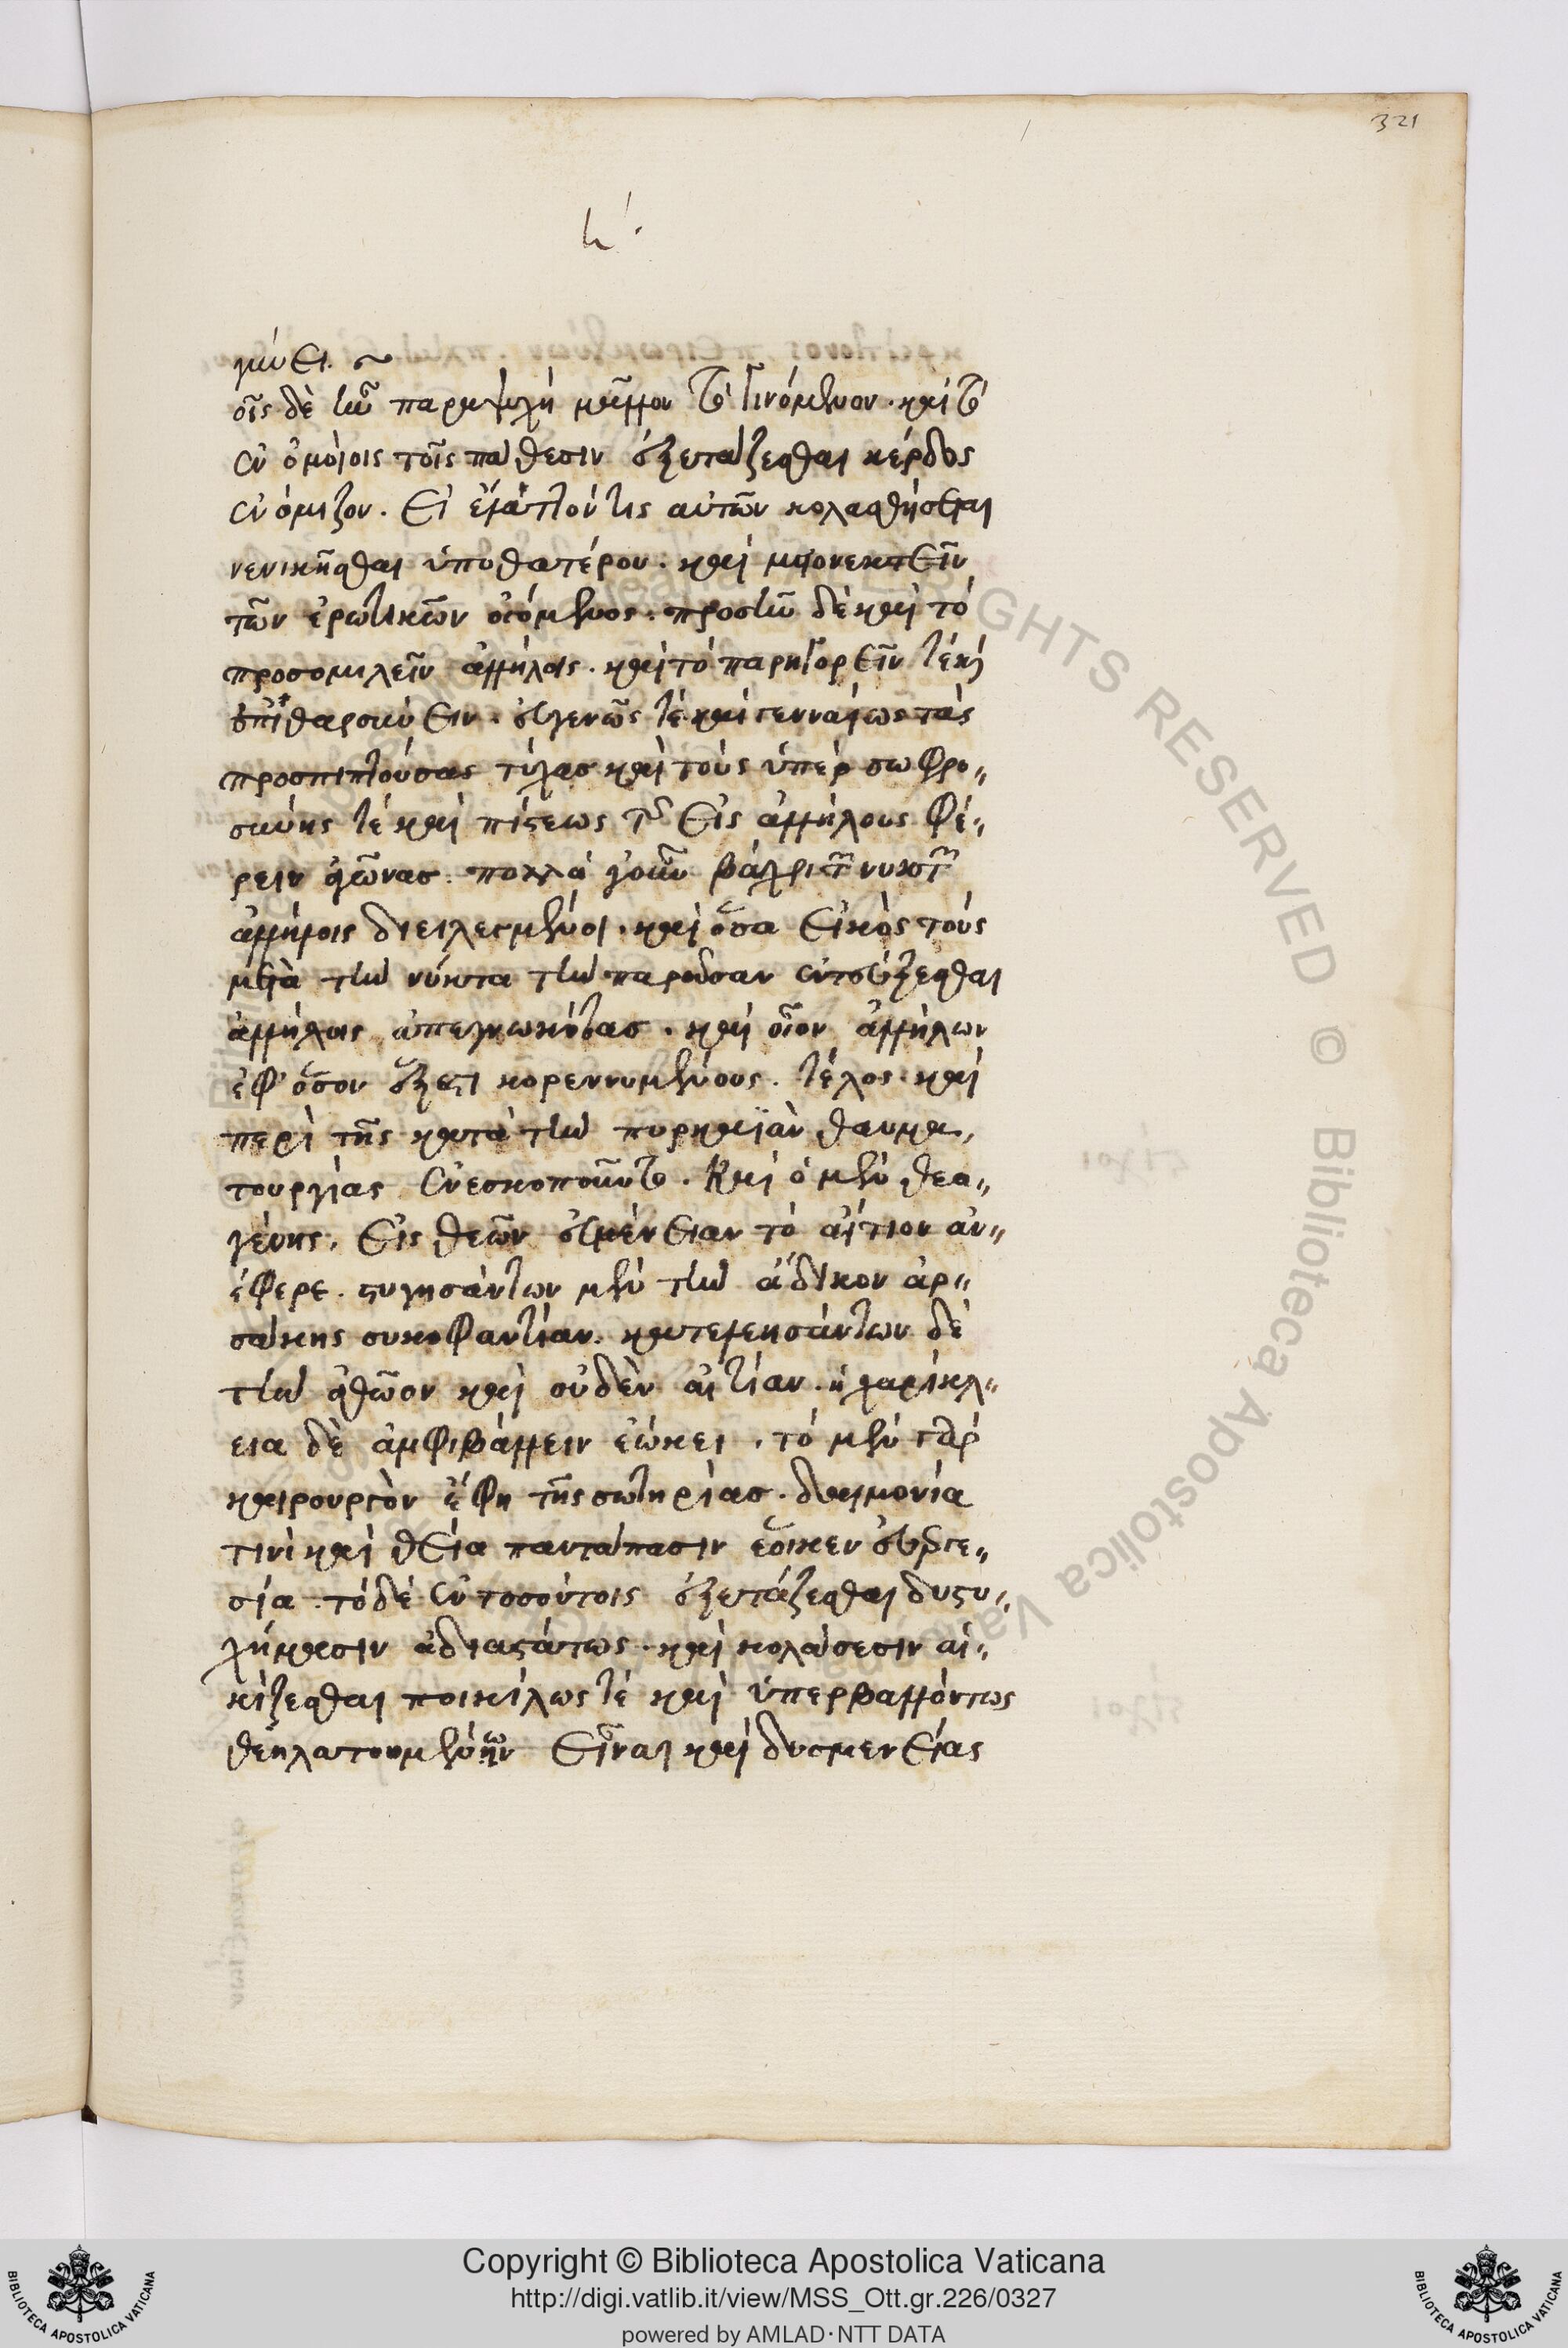 321
η΄.
γκύει.
οἷς δὲ ἦν παραψυχὴ μᾶλλον τὸ γινόμενον. καὶ τὸ
ἐν ὁμοίοις τοῖς πάθεσιν ἐξετάζεσθαι κέρδος
ἐνόμιζον. εἰ ἔλαττόν τις αὐτῶν κολασθήσεται
νενικῆσθαι ὑπὸ θατέρου. καὶ μειονεκτεῖν
τῶν ἐρωτικῶν οἰόμενος. προσῆν δὲ καὶ τὸ
προσομιλεῖν ἀλλήλοις. καὶ τὸ παρηγορεῖν τὲ καὶ
ἐπιθαρσύνειν. εὐγενῶς τὲ καὶ γενναίως τὰς
προσπιπτούσας τύχας καὶ τοὺς ὑπὲρ σωφρο„
σύνης τὲ καὶ πίστεως τῆς εἰς ἀλλήλους φέ„
ρειν ἀγῶνας. πολλὰ γοῦν βάχρι τῆς νυκτὸς
ἀλλήλοις διειλεγμένοι. καὶ ὅσα εἰκὸς τοὺς
μετὰ τὴν νύκτα τὴν παροῦσαν ἐντεύξεσθαι
ἀλλήλοις ἀπεγνωκότας. καὶ οἷον ἀλλήλων
ἐφ' ὅσον ἔξεστι κορεννυμένους. τέλος καὶ
περὶ τῆς κατὰ τὴν πυρκαϊὰν θαυμα,
τουργίας ἐνεσκοποῦντο. Καὶ ὁ μὲν θεα„
γένης, εἰς θεῶν εὐμένειαν τὸ αἴτιον ἀν„
έφερε. στυγησάντων μὲν τὴν ἄδικον ἀρ„
σάκης συκοφαντίαν. κατελεησάντων δὲ
τὴν ἀθῶον καὶ οὐδὲν αἰτίαν. ἡ χαρίκλ„
εια δὲ ἀμφιβάλλειν ἐώκει. τὸ μὲν γὰρ
καιρουργὸν ἔφη τῆς σωτηρίας. δαιμονία
τινὶ καὶ θεία παντάπασιν ἔοικεν εὐεργε„
σία. τὸ δὲ ἐν τοσούτοις ἐξετάζεσθαι δυστυ„
χήμασιν ἀδιαστάτως. καὶ κολάσεσιν αἰ„
κίζεσθαι ποικίλως τὲ καὶ ὑπερβαλλόντως
θεηλατουμένων εἶναι καὶ δυσμενείας
ALL RIGHTS RESERVED © Biblioteca Apostolica Vaticana
Copyright © Biblioteca Apostolica Vaticana
http://digi.vatlib.it/view/MSS_Ott.gr.226/0327
powered by AMLAD·NTT DATA
BIBLIOTECA APOSTOLICA VATICANA
BIBLIOTECA APOSTOLICA VATICANA